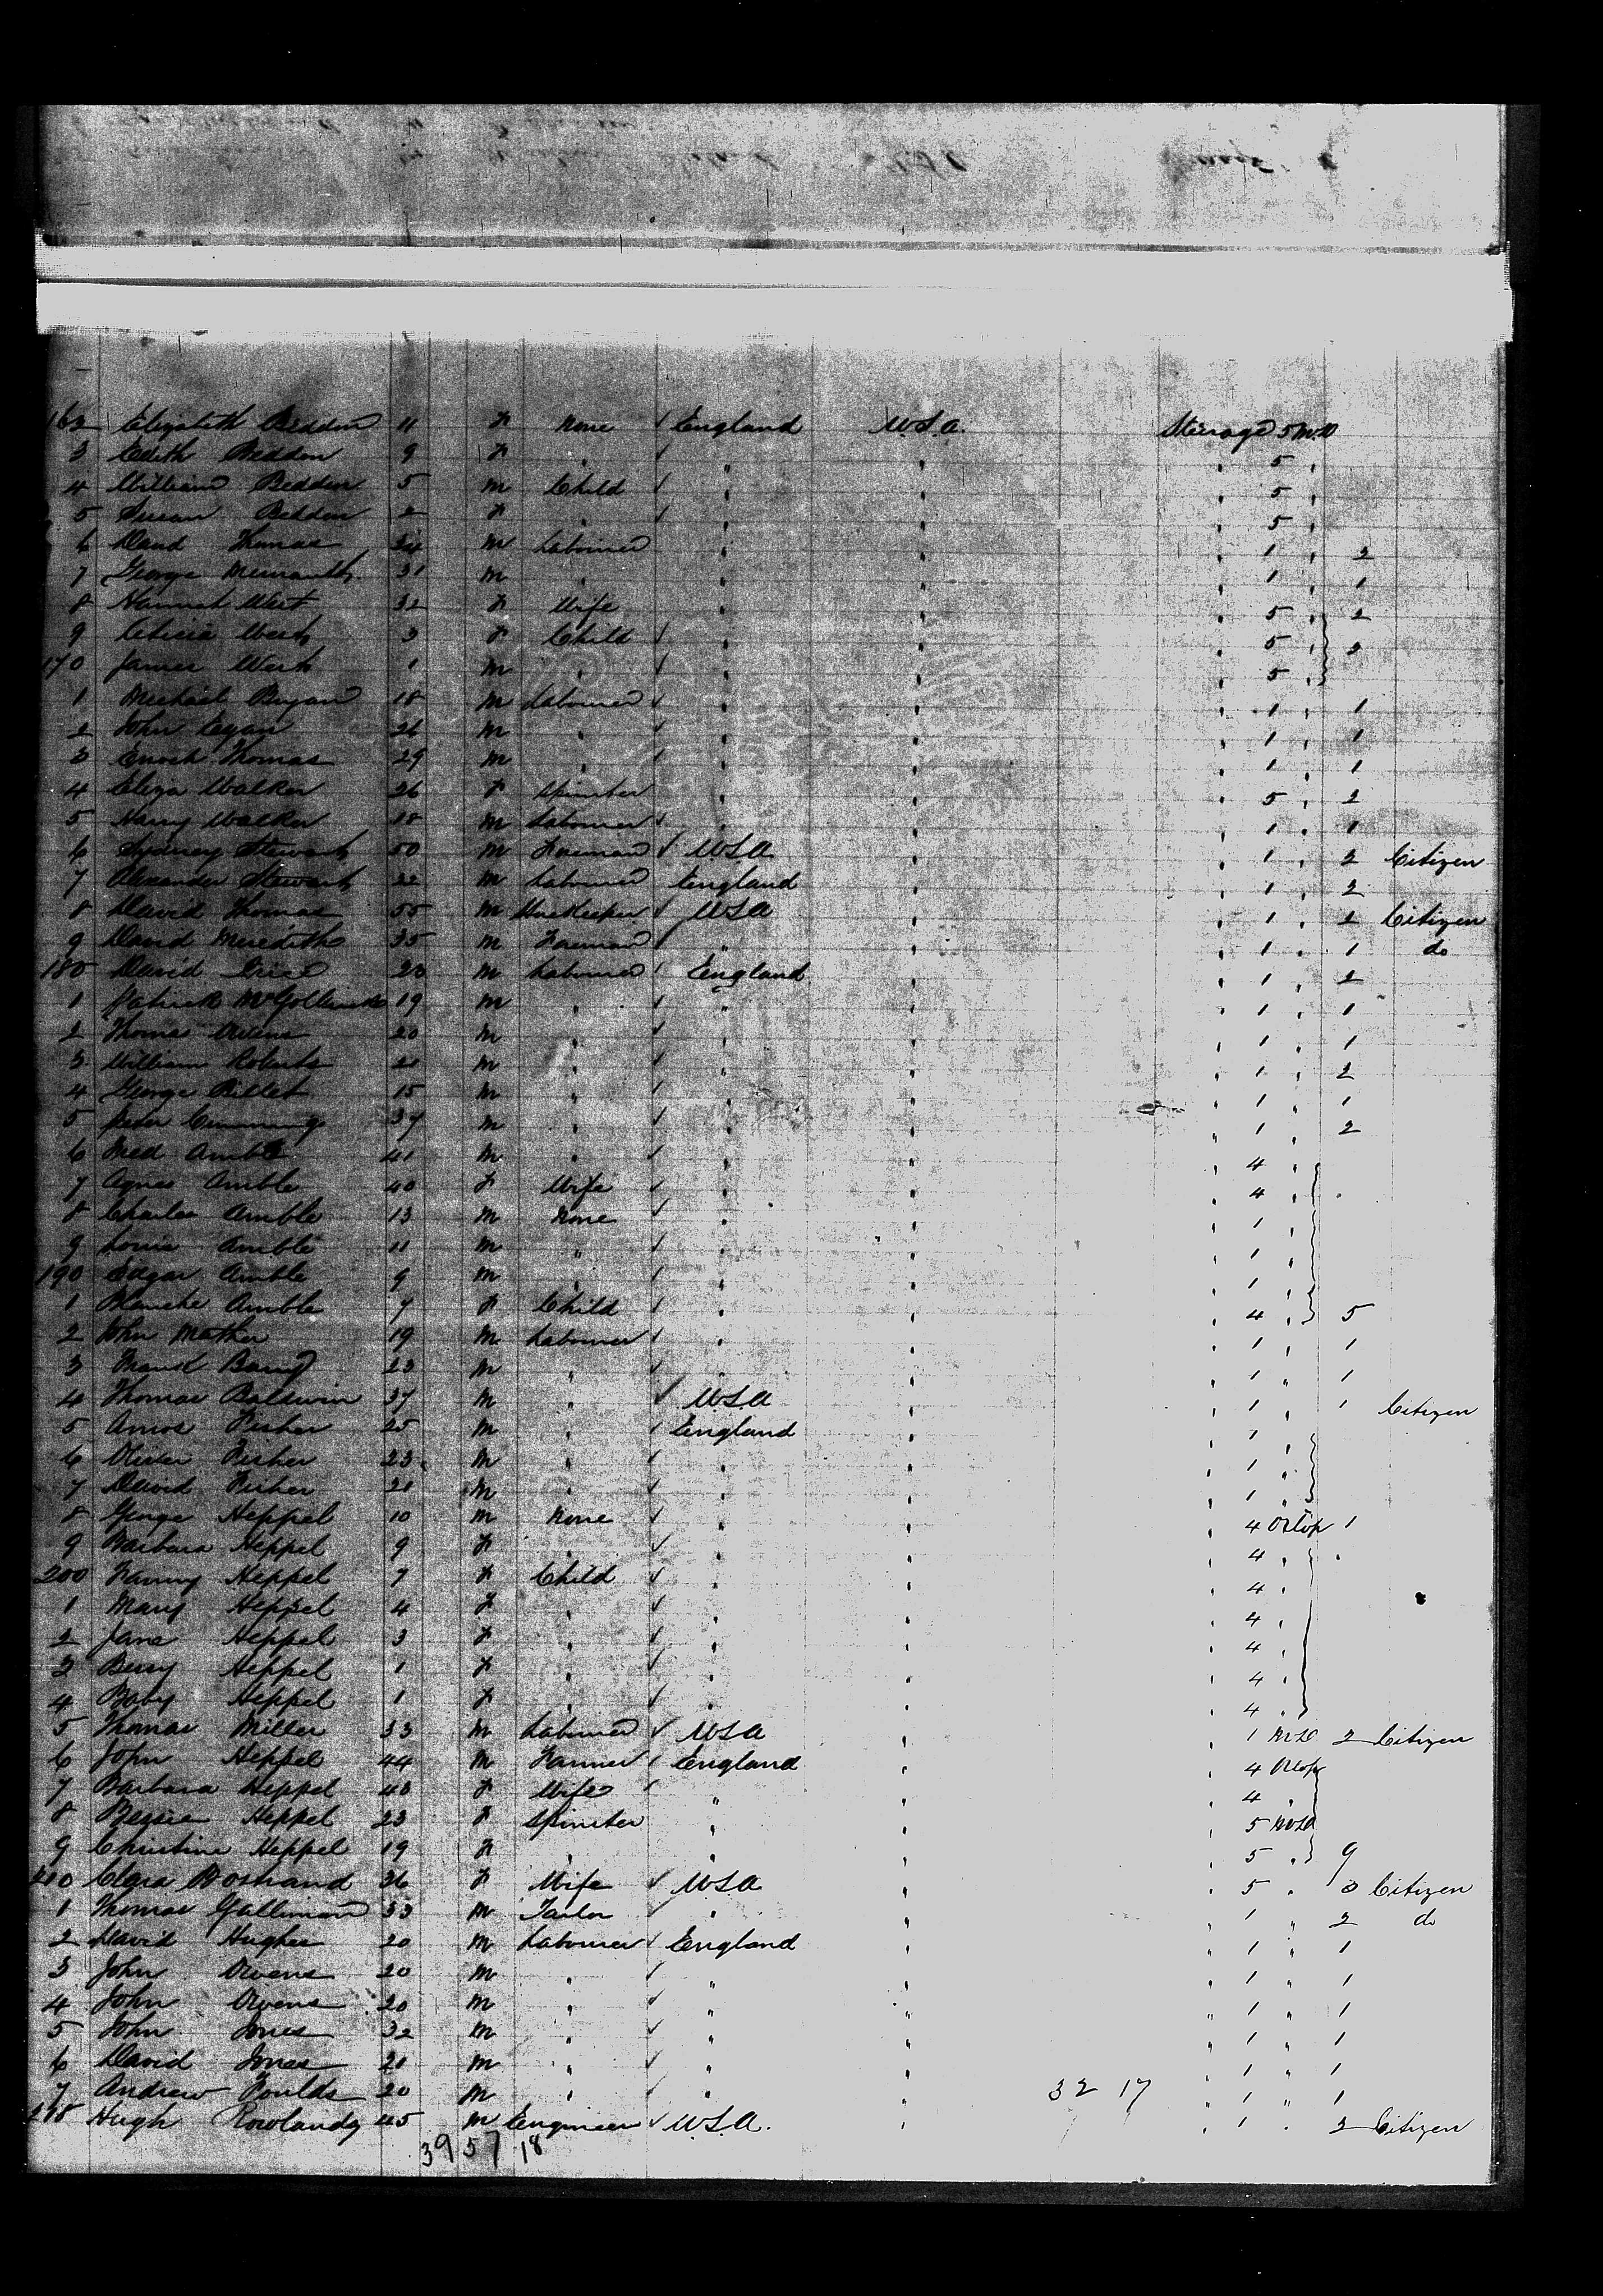 162 Elizabeth Beddon 11 F None ✓ England U.S.A. Steerage 5 M.D
3 Edith Beddon 9 F " ✓ " " " 5 "
4 William Beddon 5 M Child ✓ " " " 5 "
5 Susan Beddon 2 F " ✓ " " " 5 "
6 David Thomas 24 M Labourer " " " 1 " 2
7 George 31 M " " " " 1 " 1
8 Hannah West 32 F Wife " " " 5 " 2
9 Leticia West 3 F Child ✓ " " " 5 " 2
170 James West 1 M " ✓ " " " 5 "
1 Michael Bryan 18 M Labourer ✓ " " " 1 " 1
2 John Egan 26 M " ✓ " " " 1 " 1
3 Enoch Thomas 29 M " ✓ " " " 1 " 1
4 Eliza Walker 26 F Spinster " " " 5 " 2
5 Harry Walker 18 M Labourer ✓ " " " 1 " 1
6 Sydney Stewart 50 M Foreman ✓ U.S.A " " 1 " 2 Citizen
7 Alexander Stewart 22 M Labourer England " " 1 " 2
8 David Thomas 55 M ✓ U.S.A " " 1 " 2 Citizen
9 David Meredith 35 M Foreman ✓ " " " 1 " 1 do
180 David Price 20 M Labourer ✓ England " " 1 " 2
1 Patrick 19 M " ✓ " " " 1 " 1
2 Thomas Owens 20 M " ✓ " " " 1 " 1
3 William Roberts 21 M " ✓ " " " 1 " 2
4 George 15 M " ✓ " " " 1 " 1
5 Peter Cummings 37 M " ✓ " " " 1 " 2
6 Fred Amble 41 M " ✓ " " " 4 "
7 Agnes Amble 40 F Wife ✓ " " " 4 " "
8 Charles Amble 13 M None ✓ " " " 1 "
9 Louis Amble 11 M " ✓ " " " 1 "
190 Edgar Amble 9 M " ✓ " " " 1 "
1 Blanche Amble 7 F Child ✓ " " " 4 " 5
2 John Mather 19 M Labourer ✓ " " " 1 " 1
3 23 M " ✓ " " " 1 " 1
4 Thomas Baldwin 37 M " ✓ U.S.A " " 1 " 1 Citizen
5 Amos Fisher 25 M " ✓ England " " 1 "
6 Fisher 23 M " ✓ " " " 1 "
7 David Fisher 21 M " ✓ " " " 1 "
8 George Heppel 10 M None ✓ " " " 4 Orlop 1
9 Barbara Heppel 9 F " ✓ " " " 4 " "
200 Fanny Heppel 7 F Child ✓ " " " 4 "
1 Mary Heppel 4 F " ✓ " " " 4 "
2 Jane Heppel 3 F " ✓ " " " 4 "
3 Heppel 1 F " ✓ " " " 4 "
4 Baby Heppel 1 F " ✓ " " " 4 "
5 Thomas Miller 33 M Labourer ✓ U.S.A " " 1 M.D 2 Citizen
6 John Heppel 44 M Farmer ✓ England " " 4 Orlop
7 Barbara Heppel 43 F Wife ✓ " " " 4 "
8 Bessie Heppel 23 F Spinster " " " 5 M.D
9 Christina Heppel 19 F " " " " 5 " 9
210 Clara 36 F Wife ✓ U.S.A " " 5 " 3 Citizen
1 Thomas Galliman 33 M Tailor ✓ " " " 1 " 2 do
2 David Hughes 20 M Labourer ✓ England " " 1 " 1
3 John Owens 20 M " ✓ " " " 1 " 1
4 John Owens 20 M " ✓ " " " 1 " 1
5 John Jones 32 M " ✓ " " " 1 " 1
6 David Jones 21 M " ✓ " " " 1 " 1
7 Andrew Foulds 20 M " ✓ " " 32 17 " 1 " 1
218 Hugh Rowlands 45 M Engineer ✓ U.S.A. " " 1 " 2 Citizen
39 57 18